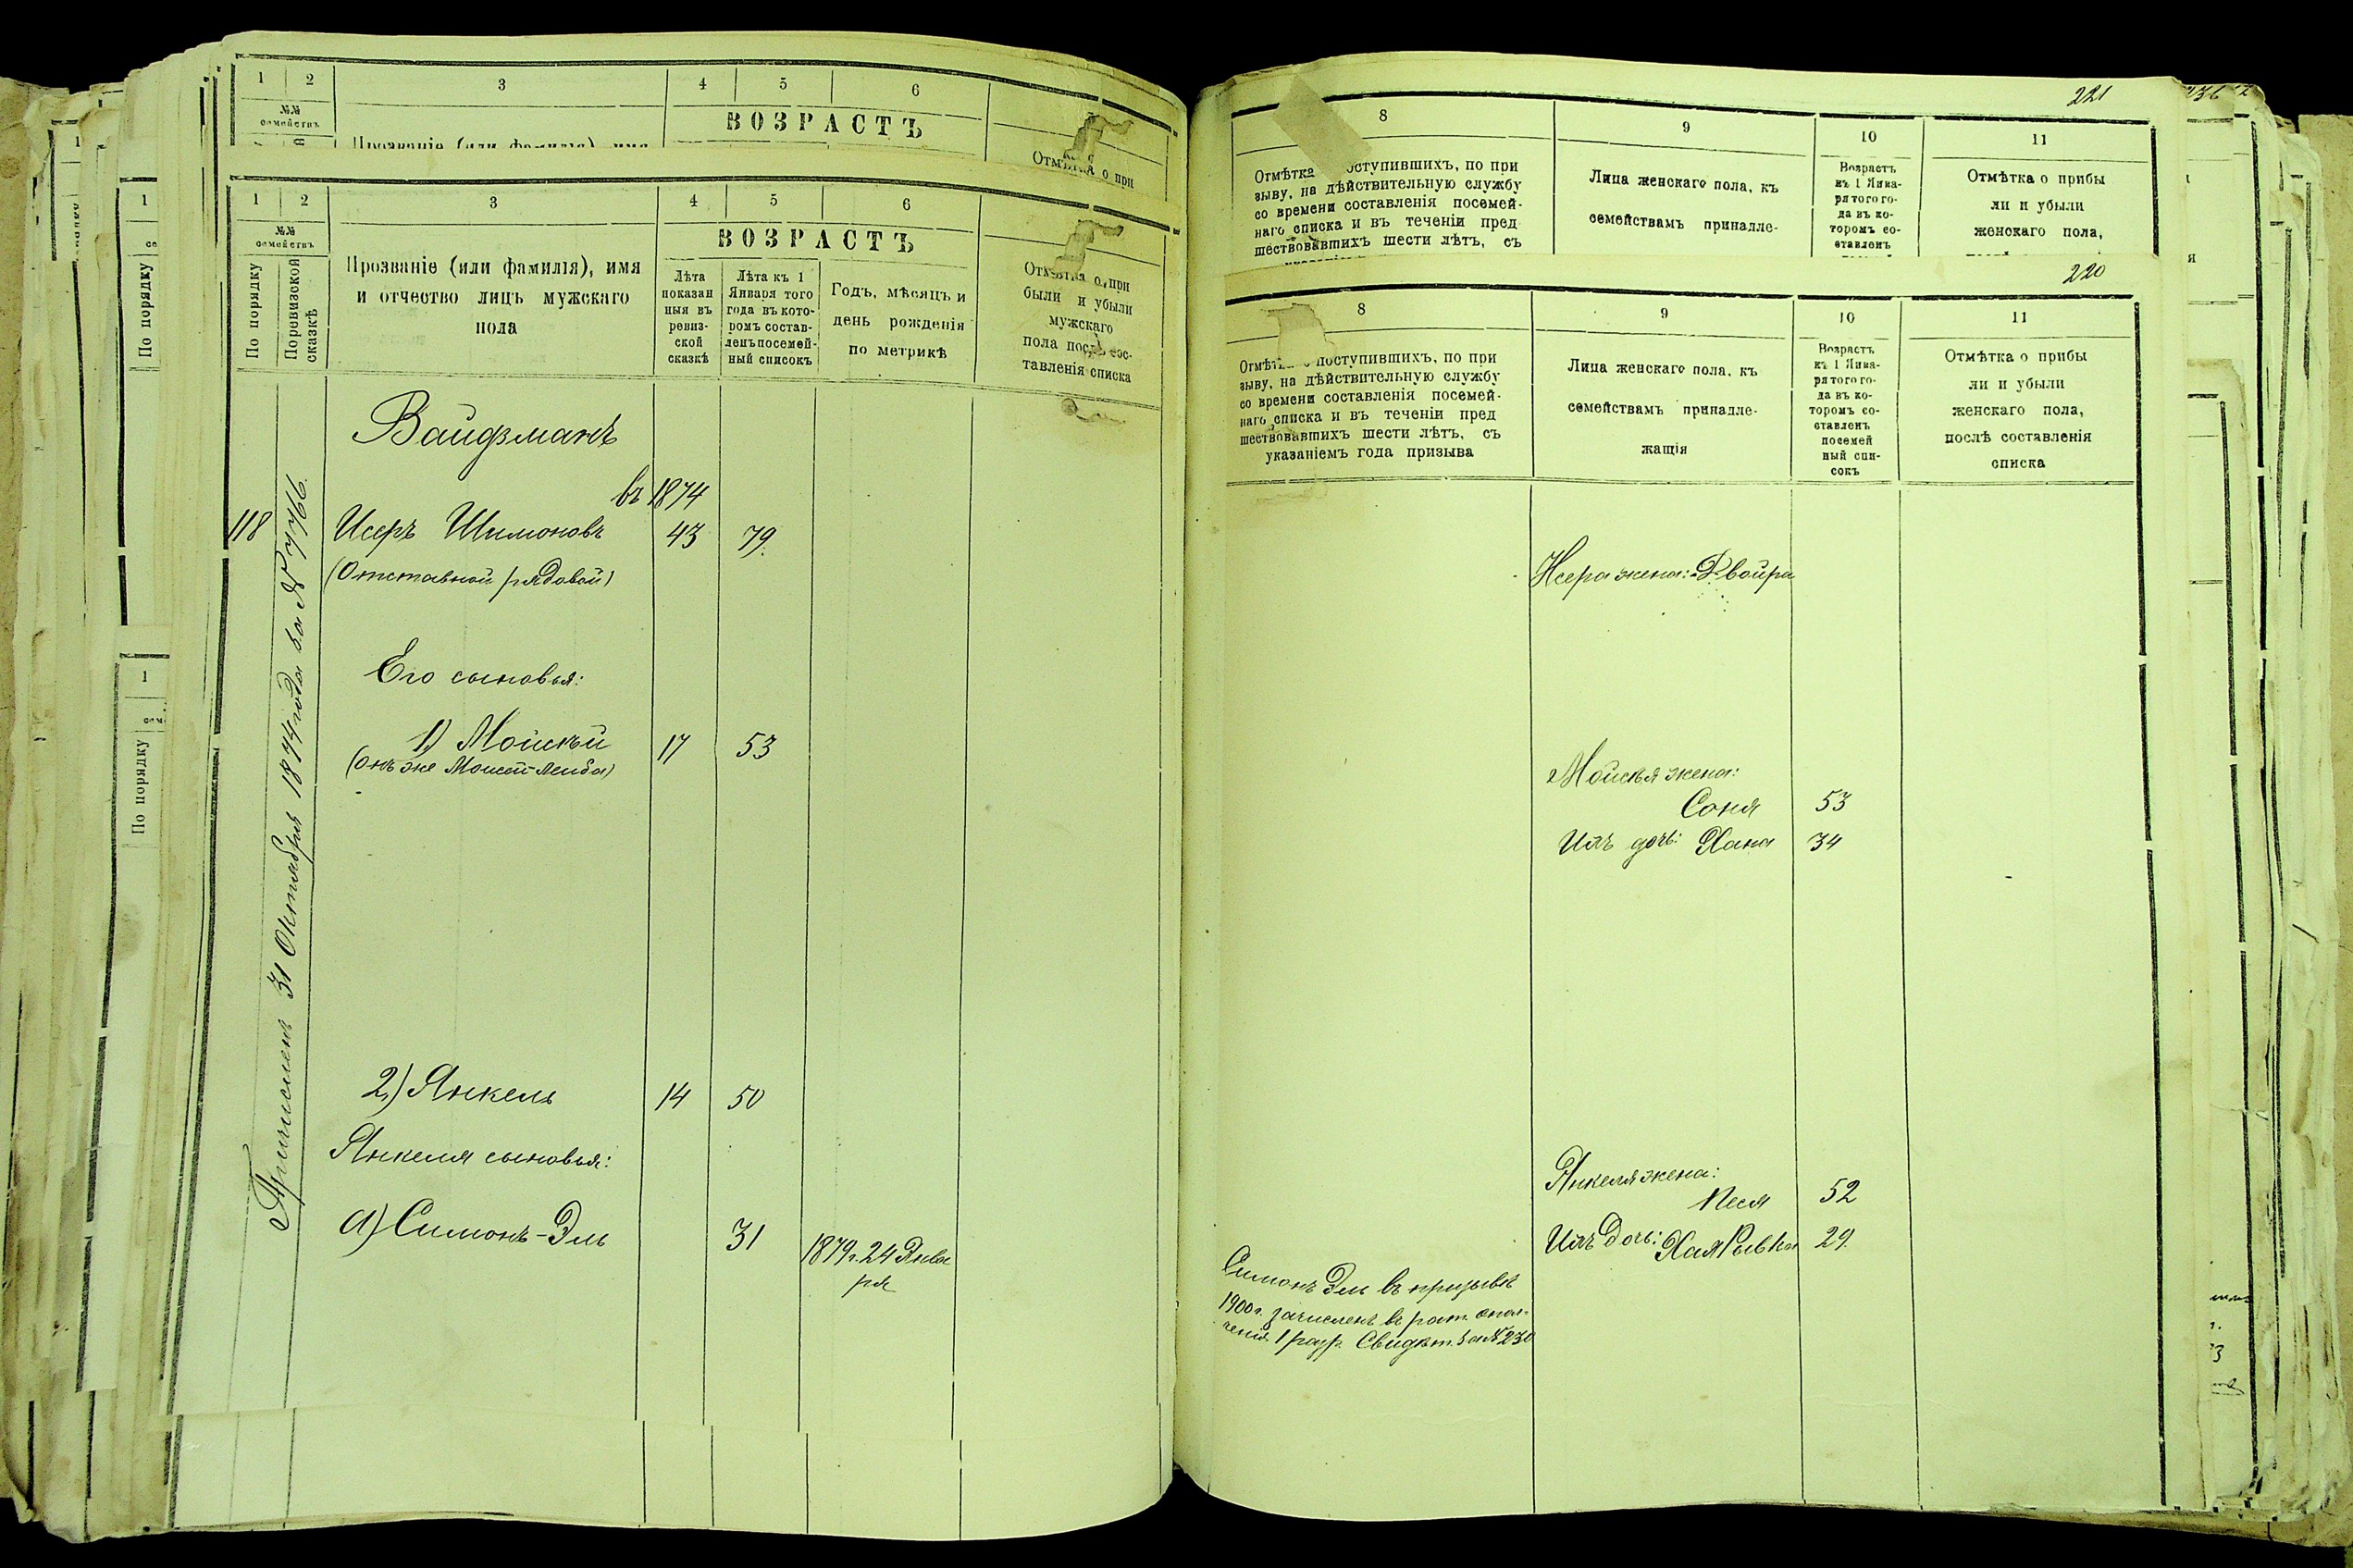 1 2 3 4 5 6
№№ семействъ
ВОЗРАСТЪ
Прозваніе (или фамилія), имя
Отмѣтка о при
1 2 3 4 5 6
№№ семействъ
По порядку
По ревизской сказкѣ
Прозваніе (или фамилія), имя
и отчество лицъ мужскаго
пола
ВОЗРАСТЪ
Лѣта
показан
ныя въ
ревиз-
ской
сказкѣ
Лѣта къ 1
Января того
года въ кото-
ромъ состав-
ленъ посемей-
ный списокъ
Годъ, мѣсяцъ и
день рожденія
по метрикѣ
Отмѣтка о при
были и убыли
мужскаго
пола послѣ сос-
тавленія списка
Вайдманъ
въ 1874
118 Исеръ Шимоновъ 43 79.
(Отставной рядовой)
Причисленъ 31 Октября 1874 года за № 7766.
Его сыновья:
1) Мойсѣй 17 53
(онъ же Моисей-Лейба)
2) Янкель 14 50
Янкеля сыновья:
а) Симонъ-Эль 31 1879 г. 24 Янва
ря
221
8 9 10 11
Отмѣтка поступившихъ, по при
зыву, на дѣйствительную службу
со времени составленія посемей-
наго списка и въ теченіи пред
шествовавшихъ шести лѣтъ, съ
Лица женскаго пола, къ
семействамъ принадле-
Возрастъ
къ 1 Янва-
ря того го-
да въ ко-
торомъ со-
ставленъ
Отмѣтка о прибы
ли и убыли
женскаго пола,
220
8 9 10 11
Отмѣтка о поступившихъ, по при
зыву, на дѣйствительную службу
со времени составленія посемей-
наго списка и въ теченіи пред
шествовавшихъ шести лѣтъ, съ
указаніемъ года призыва
Лица женскаго пола, къ
семействамъ принадле-
жащія
Возрастъ
къ 1 Янва-
ря того го-
да въ ко-
торомъ со-
ставленъ
посемей
ный спи-
сокъ
Отмѣтка о прибы
ли и убыли
женскаго пола,
послѣ составленія
списка
Исера жена: Двойра
Мойсѣя жена:
Соня 53
Ихъ дочь: Хана 34
Янкеля жена:
Песя 52
Ихъ дочь: Хая Рывка 29.
Симонъ Эль въ призывѣ
1900 г. зачисленъ въ рат. опол-
ченія 1 разр. Свидѣт. за № 230